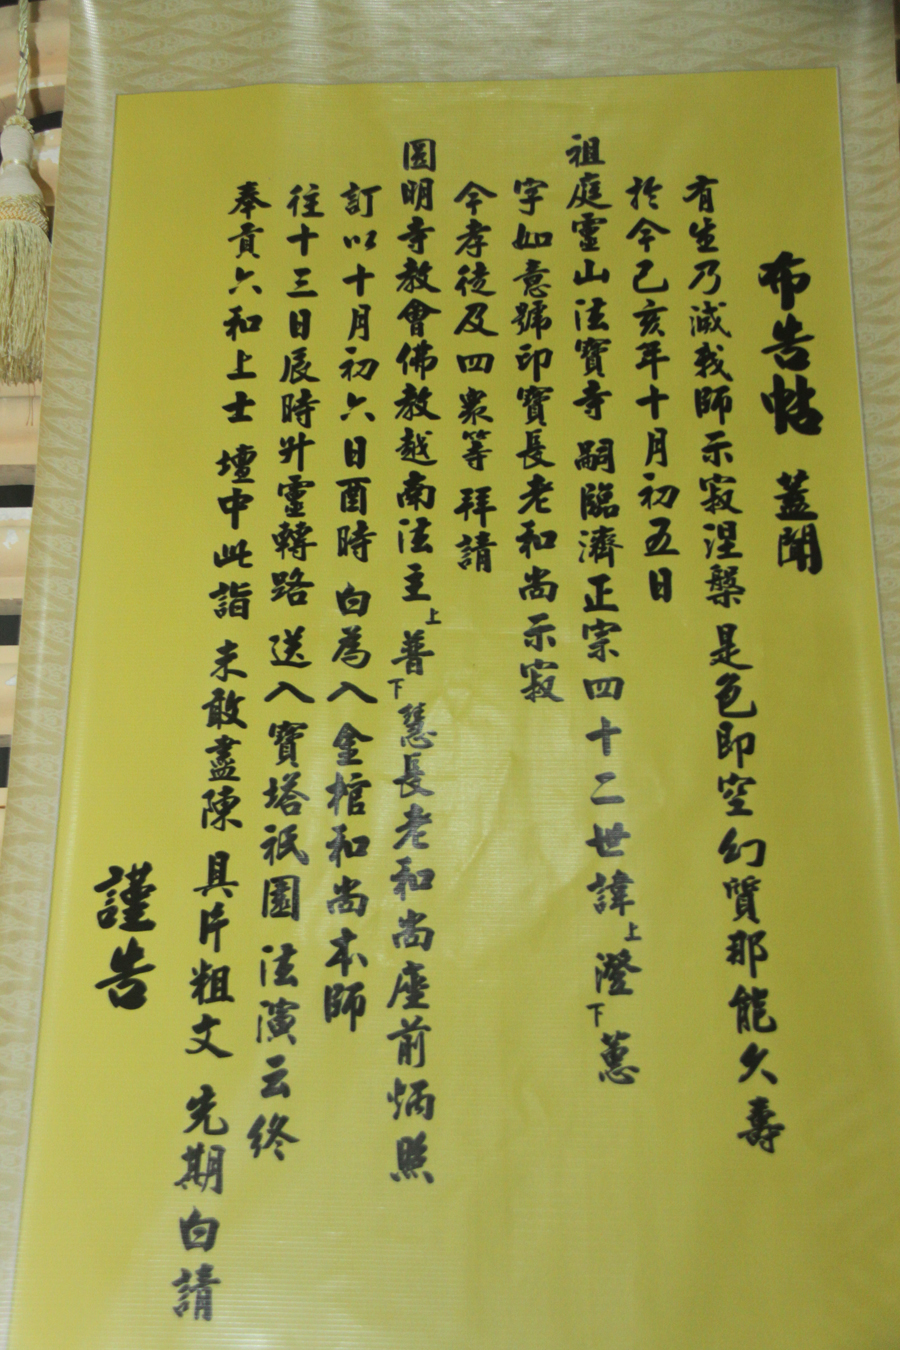 布告帖 蓋聞
有生乃滅我師示寂涅槃 是色即空幻質那能久壽
於今己亥年十月初五日
祖庭靈山法寶寺 嗣臨濟正宗四十二世諱上澄下蔥
字如意號印寶長老和尚示寂
今孝徒及四眾等 拜請
圓明寺教會佛教越南法主上普下慧長老和尚座前炳照
訂以十月初六日酉時 白為入金棺和尚本師
往十三日辰時升靈轉路 送入寶塔祇園 法演云終
奉貢六和上士 壇中此詣 未敢盡陳 具片粗文 先期白請
謹告